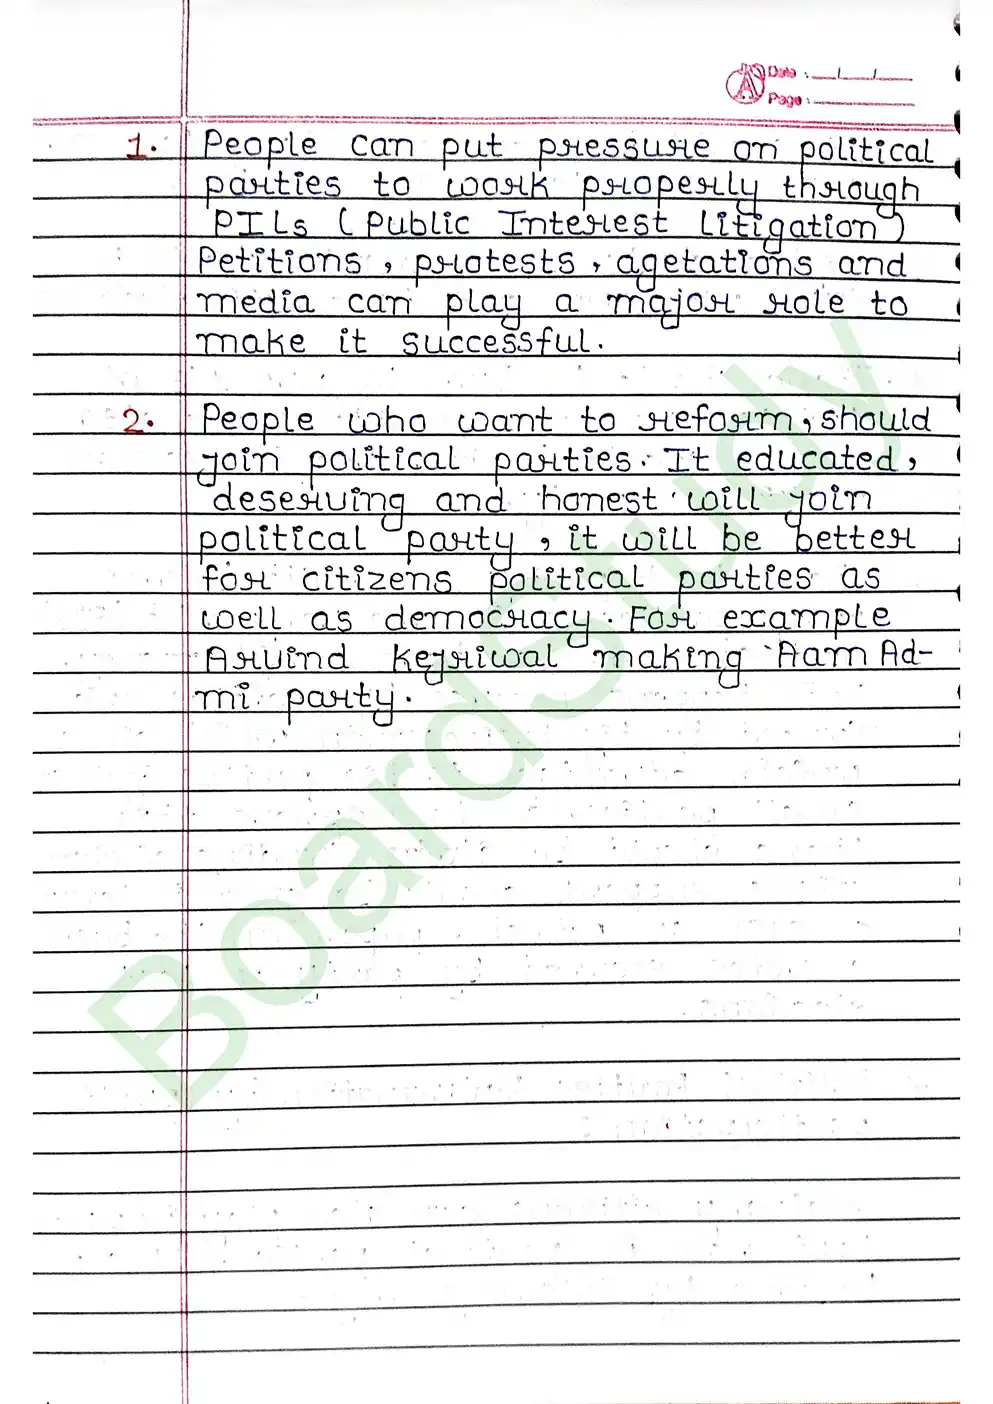 Date : __/__/__
Page :
1. People can put pressure on political
parties to work properly through
PILs (Public Interest Litigation)
Petitions, protests, agetations and
media can play a major role to
make it successful.
2. People who want to reform, should
join political parties. It educated,
deserving and honest will join
political party, it will be better
for citizens political parties as
well as democracy. For example
Arvind Kejriwal making Aam Ad-
mi party.
BoardStudy